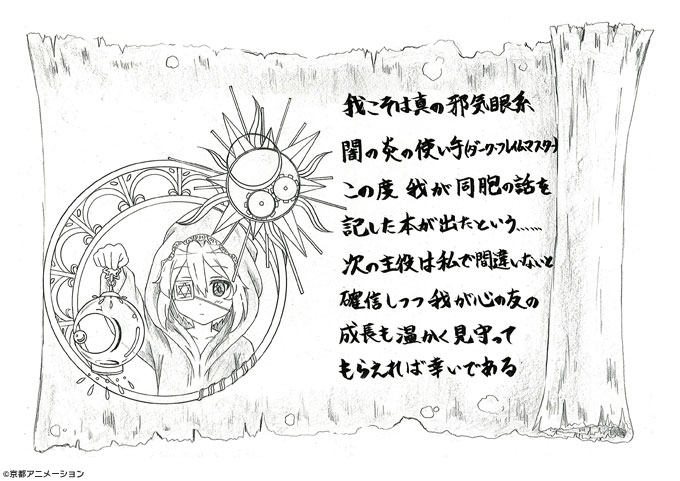 我こそは真の邪気眼系
闇の炎の使い手(ダーク・フレイムマスター)
この度 我が同胞の話を
記した本が出たという……
次の主役は私で間違いないと
確信しつつ我が心の友の
成長も温かく見守って
もらえれば幸いである
©京都アニメーション